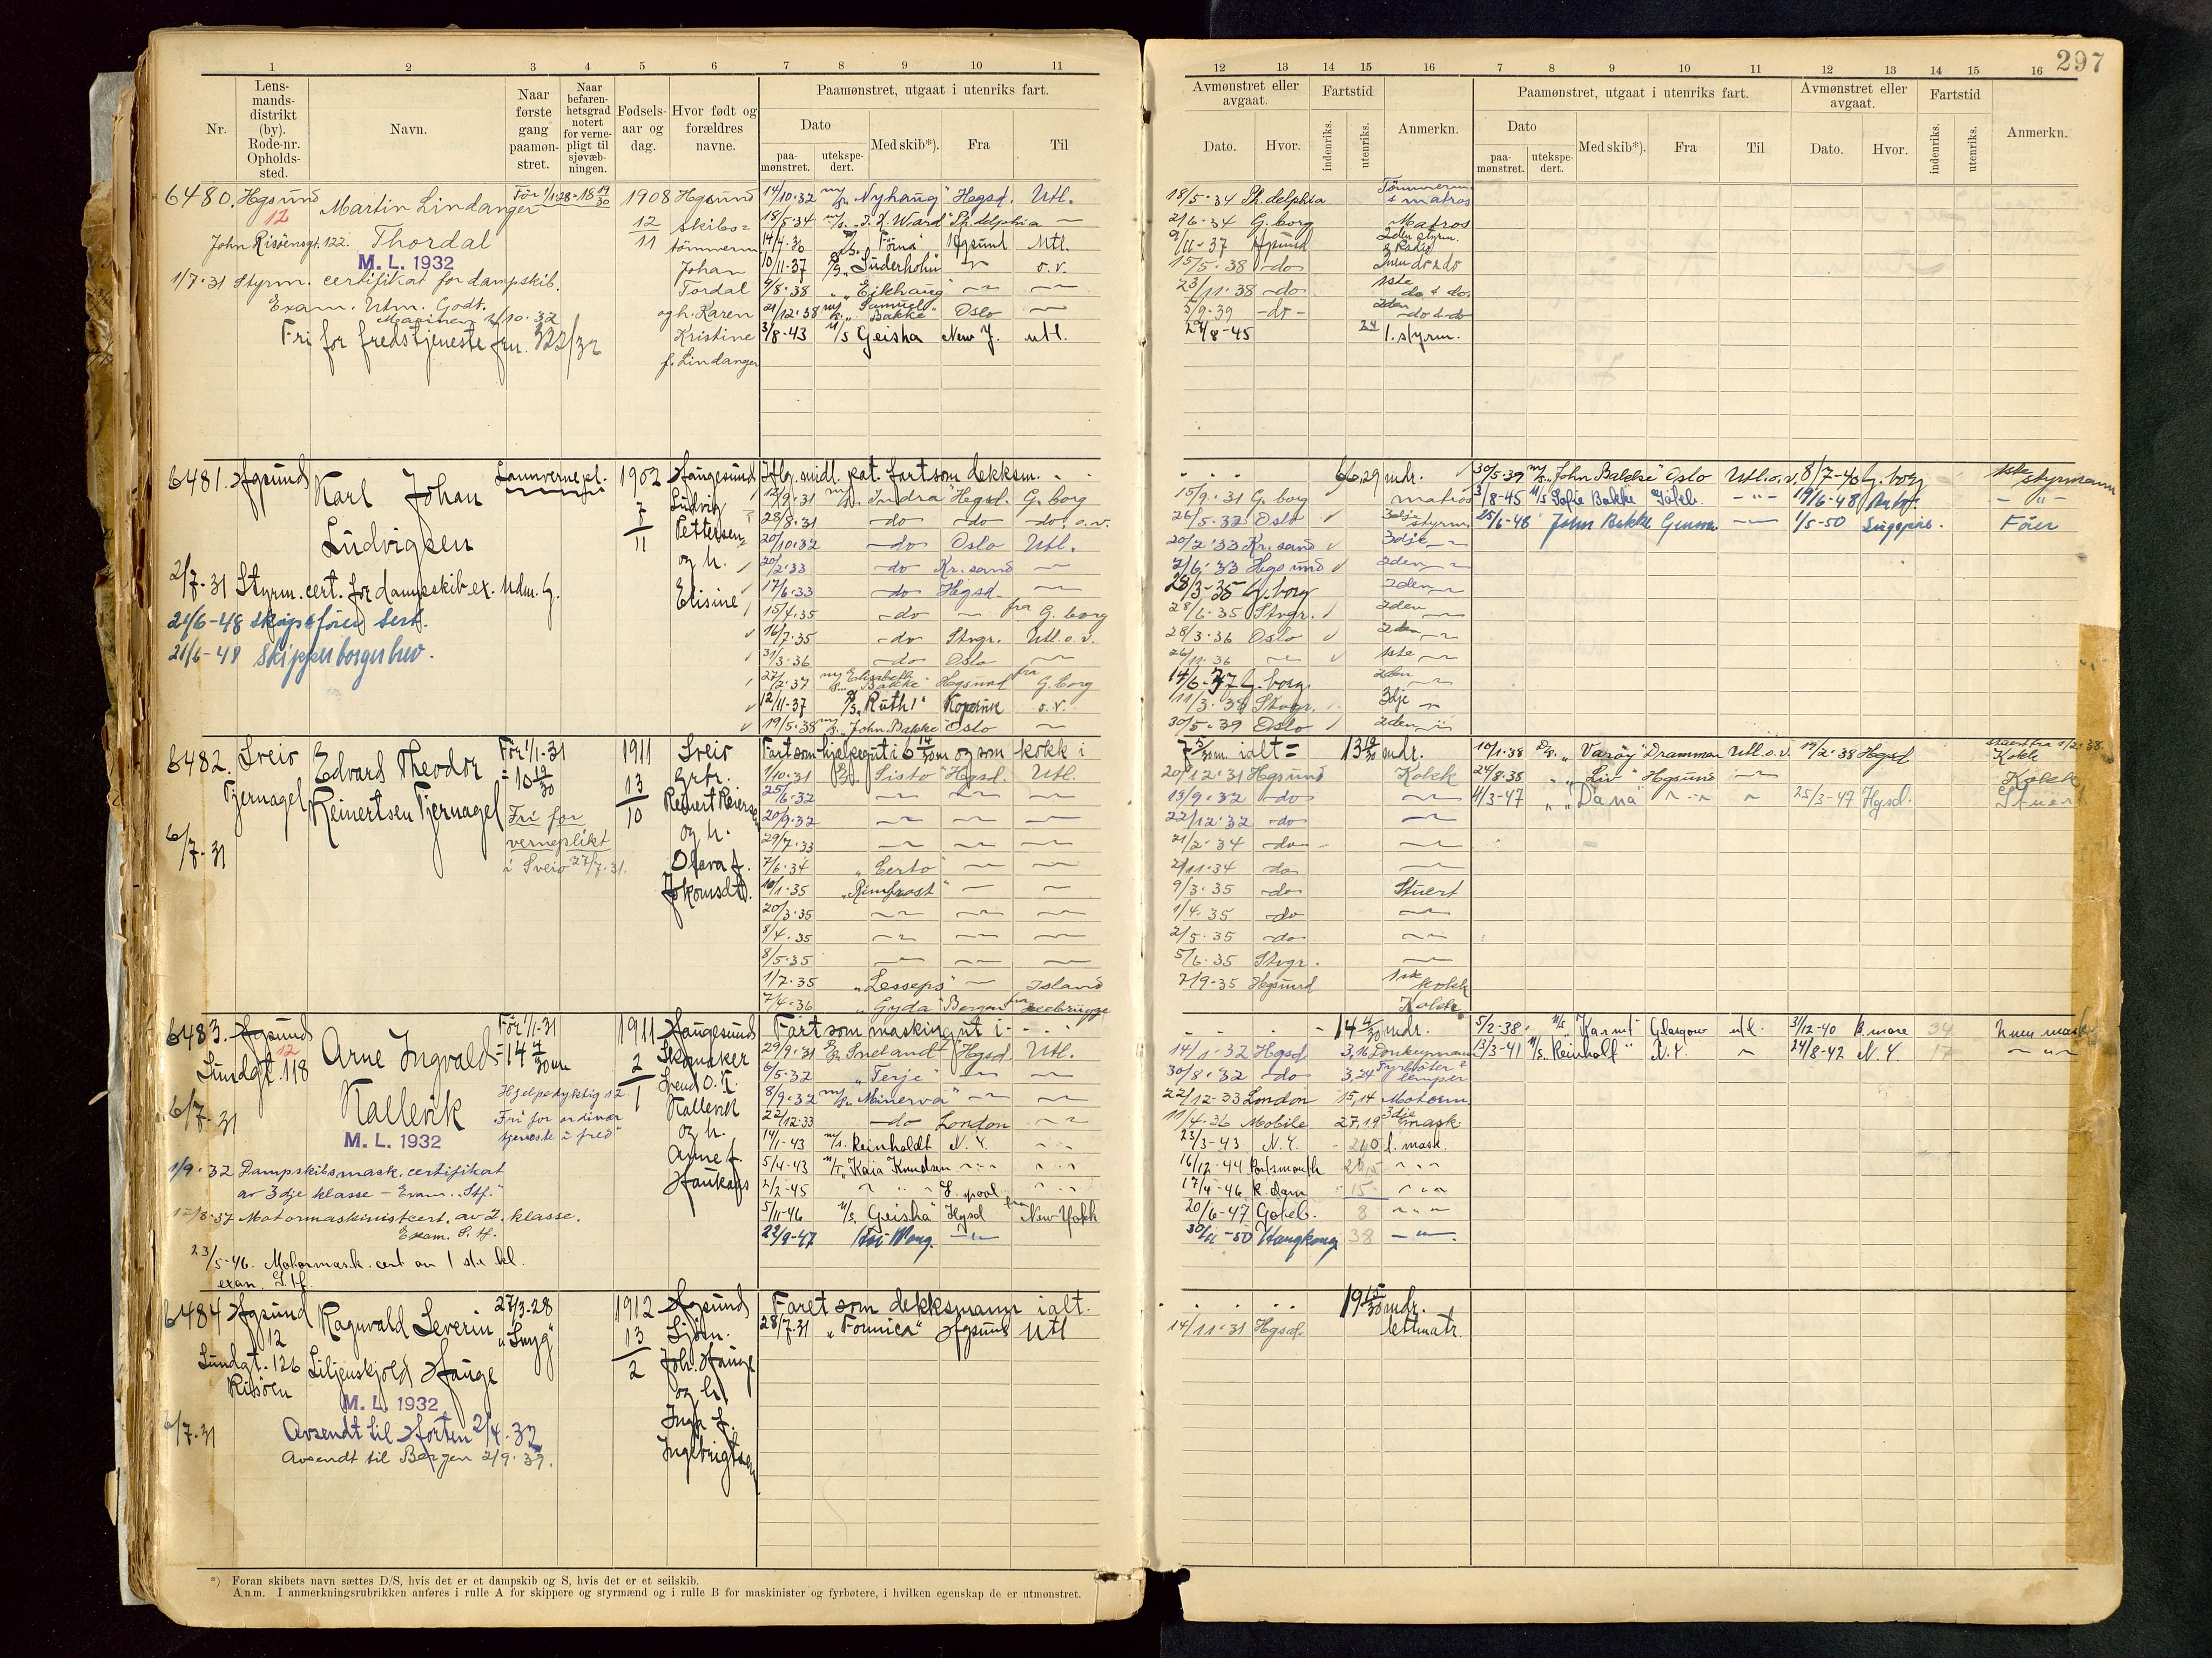 297
1 2 3 4 5 6 7 8 9 10 11
12 13 14 15 16 7 8 9 10 11 12 13 14 15 16
Nr.
Lens-
mands-
distrikt
(by).
Rode-nr.
Opholds-
sted.
Navn.
Naar
første
gang
paamøn-
stret.
Naar
befaren-
hetsgrad
notert
for verne-
pligt til
sjøvæb-
ningen.
Fødsels-
aar og
dag.
Hvor født og
forældres
navne.
Paamønstret, utgaat i utenriks fart.
Dato
paa-
mønstret.
utekspe-
dert.
Med skib*).
Fra
Til
Avmønstret eller
avgaat.
Dato.
Hvor.
Fartstid
indenriks.
utenriks.
Anmerkn.
Paamønstret, utgaat i utenriks fart.
Dato
paa-
mønstret.
utekspe-
dert.
Med skib*).
Fra
Til
Avmønstret eller
avgaat.
Dato.
Hvor.
Fartstid
indenriks.
utenriks.
Anmerkn.
6480. Hgsund
12
Martin Lindanger
John Risøensgt. 122. Thordal
M. L. 1932
1/7-31 Styrm. certifikat for dampskib.
Exam. Utm. Godt.
Fri for fredstjeneste
1908
12
11
Hgsund
skibs=
tømmerm
Johan
Tordal
og h. Karen
Kristine
f. Lindanger
14/10-32 m/s. "Nyhaug" Hgsd. Utl.
18/5-34 Ph. delphia
18/5-34 m/s. "T. K. Ward" Ph. delphia
2/6-34 G. borg Matros
10/11-37 "Süderholm"
15/5-38 -do-
4/8-38 "Eikhaug"
23/11-38 -do-
21/12-38 "Samuel Bakke" Oslo
5/9-39 -do-
3/8-43 M/S Geisha New J. utl.
/8-45 24 1. styrm.
6481. Hgsund
Karl Johan
Ludvigsen
2/7-31 Styrm. cert. for dampskib ex. Udm. G.
21/6-48 skipsfører sert.
21/6-48 Skipperborgerbrev.
1902
7
11
Haugesund
Ludvig
Pettersen
og h.
Elisine
fart som dekksm.
12/9-31 m/s. Indra Hegsd. G. borg
15/9-31 G. borg matros
28/8-31 -do- -do- -do- o.v.
26/5-32 Oslo 3dje styrm
20/10-32 -do- Oslo Utl.
20/2-33 Kr. sand 3dje
20/2-33 -do- Kr. sand
2/6-33 Hegsund 2den
17/6-33 -do- Hegsd.
28/3-35 G. borg 2den
15/4-35 -do- fra G. borg
28/6-35 Stvgr. 2den
16/7-35 -do- Stvgr. Utl. o.v.
28/3-36 Oslo 2den
31/3-36 -do- Oslo
26/11-36 1ste
27/2-37 m/s. "Elisabeth Bakke" Hegsund fra G. borg
14/6-37 G. borg 2den
12/11-37 "Ruth I" Kopervik o.v.
11/3-38 Stvgr. 3dje
19/5-38 m/s. "John Bakke" Oslo
30/5-39 Oslo 2den
30/5-39 m/s. "John Bakke" Oslo Utl. o.v. 8/7-40 G. borg 1ste styrmann
3/8-45 M/S Sofie Bakke Göteb. 19/6-48
25/6-48 John Bakke Genova 1/5-50
6482. Sveio
Tjernagel
Edvard Theodor
Reinertsen Tjernagel
6/7-31
Før 1/1-31
Fri for
verneplikt
i Sveio 27/7-31.
1911
13
10
Sveio
Grbr.
Reinert
og h.
Olava f.
1/10-31 "Listo" Hegsd. Utl.
20/12-31 Hegsund Kokk
25/6-32
13/9-32 -do-
20/9-32
22/12-32 -do-
29/7-33
21/2-34 -do-
7/6-34 "Certo"
2/11-34 -do-
10/1-35 "Rimfrost"
9/3-35 -do- Stuert
20/3-35
1/4-35 -do-
8/4-35
2/5-35 -do-
8/5-35
5/6-35 Stvgr.
1/7-35 "Lesseps" Island
7/9-35 Hegsund 1ste kokk
7/4-36 "Gyda" Bergen fra Zeebrügge
Kokk
10/1-38 D/S. "Varøy" Drammen Utl. o.v. 19/2-38 Hegsd Kokk
24/8-38 "Liv" Hgsund Kokk
4/3-47 "Dana" 25/3-47 Hgsd. Stuert
6483. Hgsund
12
Lundgt. 118
6/7-31
Arne Ingvald
Kallevik
M. L. 1932
Før 1/1-31
Hjelpedyktig
Fri for ordinær
tjeneste i fred"
1/9-32 Dampskibsmask. certifikat
av 3dje klasse - Exam. "Stf."
Motormaskinistcert. av 2. klasse.
23/5-46. Motormask. cert av 1ste kl.
exan. S. tf.
1911
2
1
Haugesund
Skomaker
Svend O. K.
Kallevik
og h.
Arne f.
Haukaas
Fart som maskingut i
14 4/30 mdr.
29/9-31 Sneland Hgsd Utl.
14/1-32 Hgsd 3,16 Donkeymann
6/5-32 "Terje"
30/8-32 -do- 3,24 Fyrbøter & lemper
8/9-32 m/s. "Minerva"
22/12-33 London 15,14 Motorm
22/12-33 -do- London
11/4-36 Mobile 27,19 3dje mask
14/1-43 m/s. Reinholdt N. Y.
23/3-43 N. Y. 1. mask.
5/4-43 M/T. "Kaia Knudsen
16/12-44 Portsmouth
2/2-45 L. pool
17/4-46 R. dam 15
5/11-46 M/S. "Geisha" Hgsd fra New York
20/6-47 Goteb. 8
22/9-47 Hoi Wong.
30/11-50 Hongkong 38
5/2-38 M/S "Karmt" Glasgow utl. 3/12-40 B. more 34
13/3-41 M/S. "Reinholt" N. Y. 24/8-42 N. Y. 17
6484 Hgsund
12
Lundgt. 126
Risøen
6/7-31
Ragnvald Severin
Liljenskjold Hauge
M. L. 1932
Avsendt til Horten 2/4-32
Avsendt til Bergen 2/9-39.
27/3-28
"Snyg"
1912
13
2
Hgsund
Sjøm.
Joh. Hauge
og h.
Inga f.
Ingebrigtsen
Faret som dekksmann ialt.
19 15/30 mdr.
28/7-31 "Fornica" Hgsund Utl
14/11-31 Hgsd. lettmatr.
*) Foran skibets navn sættes D/S, hvis det er et dampskib og S, hvis det er et seilskib.
Anm. I anmerkningsrubrikken anføres i rulle A for skippere og styrmænd og i rulle B for maskinister og fyrbøtere, i hvilken egenskap de er utmønstret.